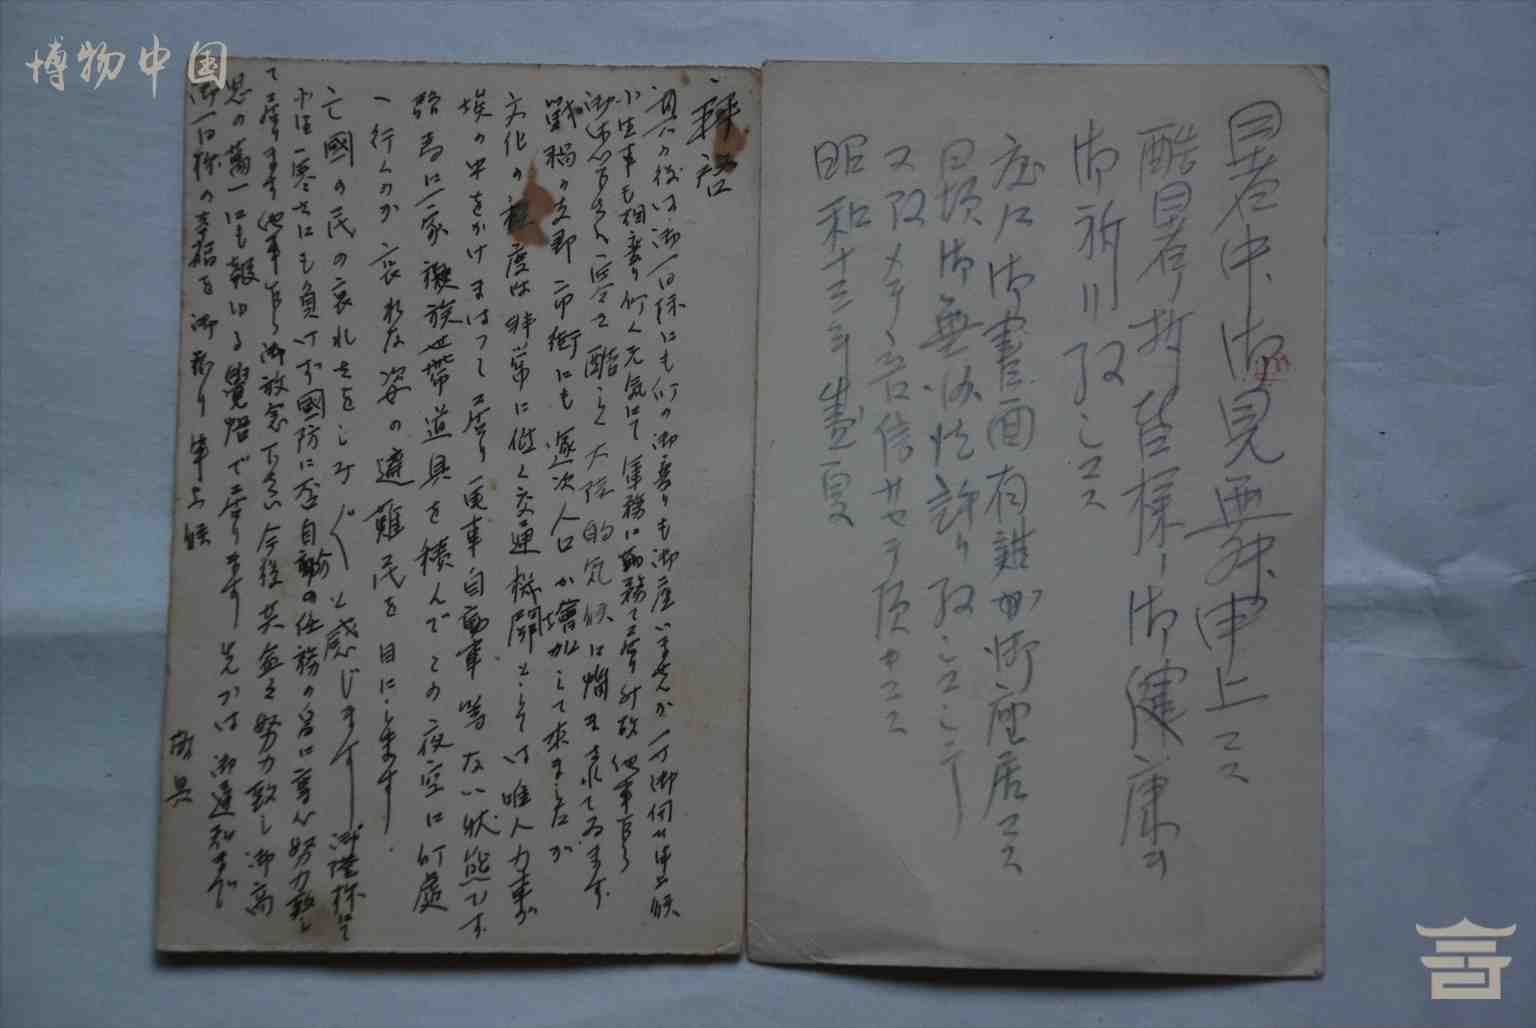 博物中国
暑中御見舞申上マス
酷暑折皆様ノ御健康ヲ
御祈リ致シマス
度々御書面有難ウ御座居マス
日頃御無沙汰許リ致シマシテ
又改メテ音信サセテ頂キマス
昭和十三年盛夏
拝啓
其の後は御一同様にも何の御変りも御座いませんか一寸御伺ひ申上候
小生事も相変り何く元気にて軍務に勤務て居り候故他事乍ら
御安心下さい
大陸的気候に悩まされてゐます
戦禍の 市街にも逐次人口が増加して来ましたが
文化の程度は非常に低く交通機関としては唯人力車が
埃の中をかけまはつて居り電車自動車等ない状態です
路馬に一家 族世帯道具を積んでこの夜空に何處
へ行くのか哀れな姿の遭難民を目にします
亡國の民の哀れさをしみじみと感じます 御陰様にて
小生 寒さにも負けず國防に 自動車の任務の為に専心努力致し
て居ります他事乍ら御放念下さい今後共益々努力致し御高
恩の萬一にも報ゆる覺悟で居ります先づは御通知まで
御一同様の幸福を御祈り申上候
敬具